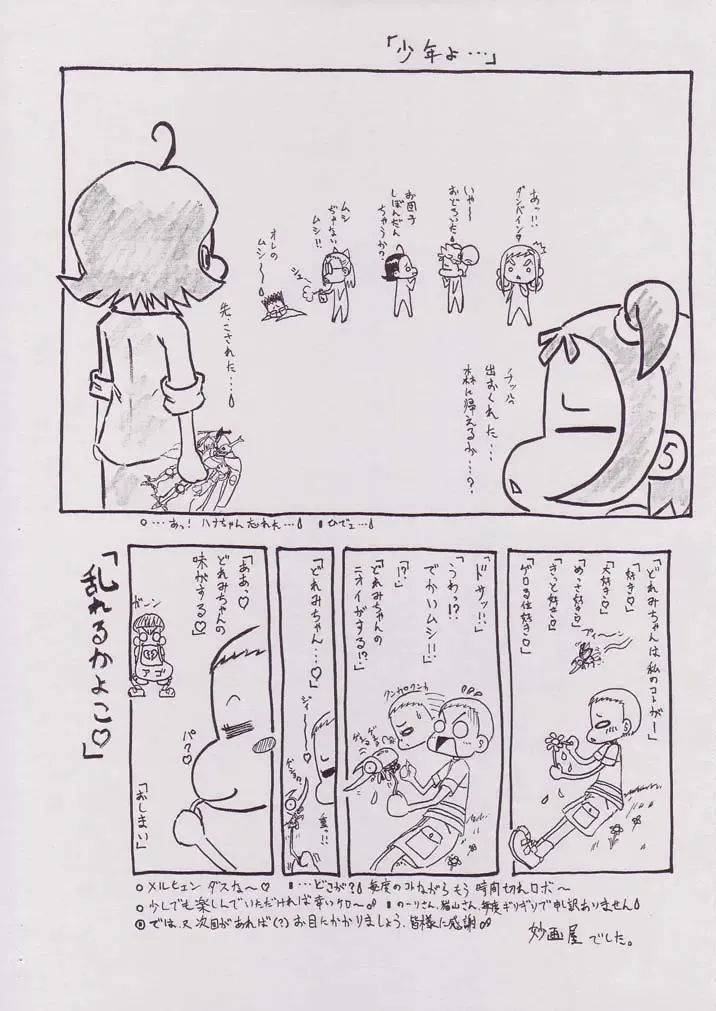 「少年よ…」
あっ!!
ダンバイン?
いや〜
おどろいた
お団子
しぼんだん
ちゃうか?
ムシ
ぢゃない
ムシ!!
オレの
ムシ〜〜
先こされた…
出おくれた…
森に帰えるか…?
○…あっ!ハナちゃん忘れた… ●ひでェ…
「どれみちゃんは私のコトがー」
「好き♡」
「大好き♡」
「めっさ好き♡」
「きっと好き♡」
「ゲロる位好き♡」
プィ〜ン
「ドサッ!!」
「うわっ!?
でかいムシ!!」
「!?」
「どれみちゃんの
ニオイがする!?」
クンカクンカ
「どれみちゃん…♡」
ジィーー
「ああっ♡
どれみちゃんの
味がする♡」
ガーン
アゴ
パク♡
「おしまい」
「乱れるかよこ♡」
○メルヒェン ダスな〜♡ ●…どこが? 毎度のコトながらもう時間切れロボ〜
○少しでも楽しんでいただければ幸いケロ〜 ●のーりさん、猫山さん、毎度ギリギリで申訳ありません
◎では、又次回があれば(?)お目にかかりましょう、皆様に感謝
妙画屋でした。